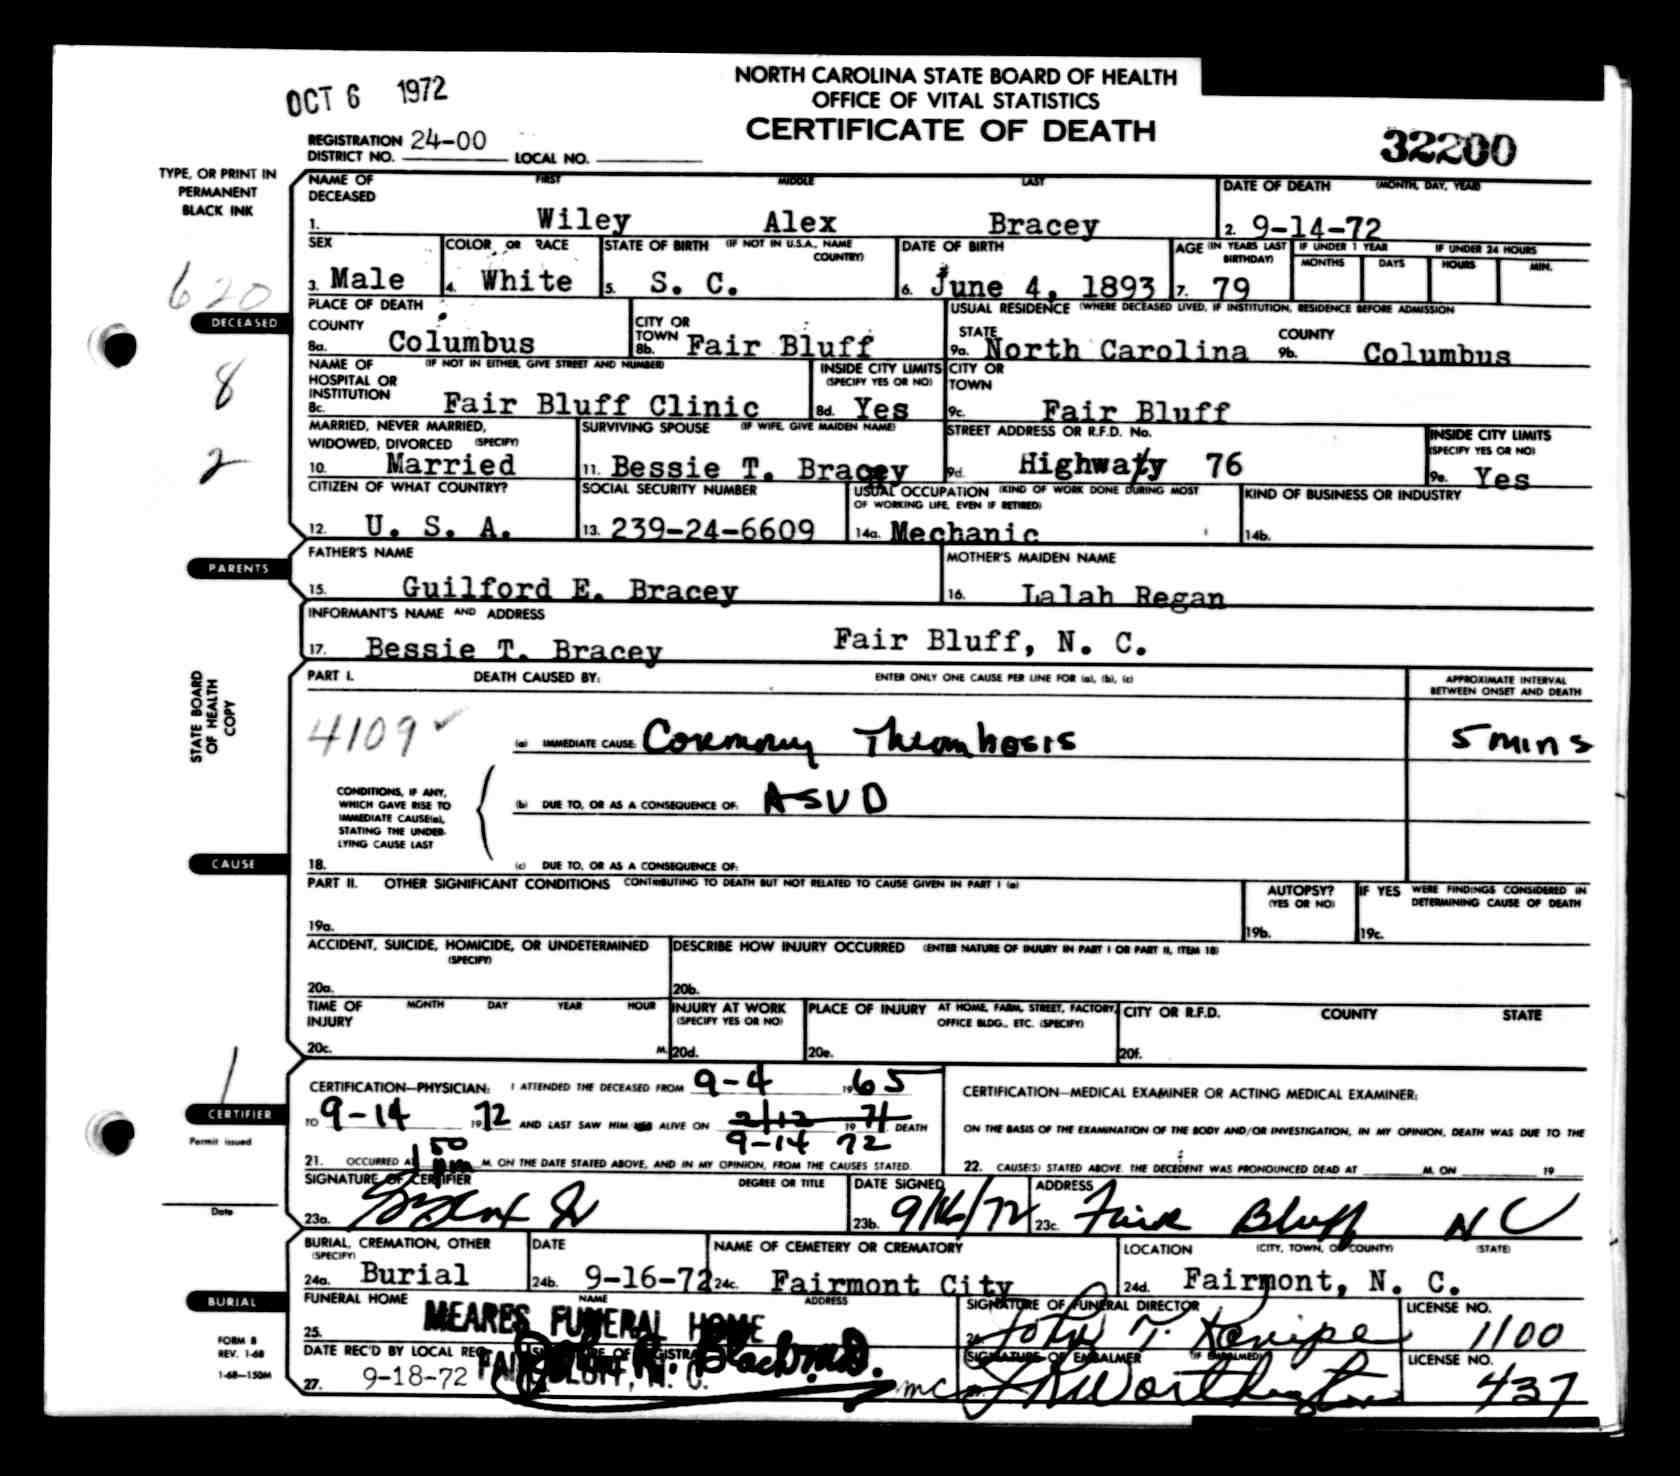 OCT 6 1972
NORTH CAROLINA STATE BOARD OF HEALTH
OFFICE OF VITAL STATISTICS
CERTIFICATE OF DEATH
REGISTRATION DISTRICT NO. 24-00 LOCAL NO.
32200
TYPE, OR PRINT IN PERMANENT BLACK INK
NAME OF DECEASED FIRST MIDDLE LAST DATE OF DEATH (MONTH, DAY, YEAR)
1. Wiley Alex Bracey 2. 9-14-72
SEX COLOR OR RACE STATE OF BIRTH (IF NOT IN U.S.A., NAME COUNTRY) DATE OF BIRTH AGE (IN YEARS LAST BIRTHDAY) IF UNDER 1 YEAR MONTHS DAYS IF UNDER 24 HOURS HOURS MIN.
3. Male 4. White 5. S. C. 6. June 4, 1893 7. 79
620
DECEASED
PLACE OF DEATH USUAL RESIDENCE (WHERE DECEASED LIVED, IF INSTITUTION, RESIDENCE BEFORE ADMISSION
COUNTY CITY OR TOWN STATE COUNTY
8a. Columbus 8b. Fair Bluff 9a. North Carolina 9b. Columbus
8
NAME OF HOSPITAL OR INSTITUTION (IF NOT IN EITHER, GIVE STREET AND NUMBER) INSIDE CITY LIMITS (SPECIFY YES OR NO) CITY OR TOWN
8c. Fair Bluff Clinic 8d. Yes 9c. Fair Bluff
2
MARRIED, NEVER MARRIED, WIDOWED, DIVORCED (SPECIFY) SURVIVING SPOUSE (IF WIFE, GIVE MAIDEN NAME) STREET ADDRESS OR R.F.D. No. INSIDE CITY LIMITS (SPECIFY YES OR NO)
10. Married 11. Bessie T. Bracey 9d. Highway 76 9e. Yes
CITIZEN OF WHAT COUNTRY? SOCIAL SECURITY NUMBER USUAL OCCUPATION (KIND OF WORK DONE DURING MOST OF WORKING LIFE, EVEN IF RETIRED) KIND OF BUSINESS OR INDUSTRY
12. U. S. A. 13. 239-24-6609 14a. Mechanic 14b.
PARENTS
FATHER'S NAME MOTHER'S MAIDEN NAME
15. Guilford E. Bracey 16. Lalah Regan
INFORMANT'S NAME AND ADDRESS
17. Bessie T. Bracey Fair Bluff, N. C.
STATE BOARD OF HEALTH COPY
PART I. DEATH CAUSED BY: ENTER ONLY ONE CAUSE PER LINE FOR (a), (b), (c) APPROXIMATE INTERVAL BETWEEN ONSET AND DEATH
4109 (a) IMMEDIATE CAUSE: Coronary Thrombosis 5 mins
CONDITIONS, IF ANY, WHICH GAVE RISE TO IMMEDIATE CAUSE(a), STATING THE UNDERLYING CAUSE LAST
(b) DUE TO, OR AS A CONSEQUENCE OF: ASVD
CAUSE
18. (c) DUE TO, OR AS A CONSEQUENCE OF:
PART II. OTHER SIGNIFICANT CONDITIONS CONTRIBUTING TO DEATH BUT NOT RELATED TO CAUSE GIVEN IN PART I (a) AUTOPSY? (YES OR NO) IF YES WERE FINDINGS CONSIDERED IN DETERMINING CAUSE OF DEATH
19a. 19b. 19c.
ACCIDENT, SUICIDE, HOMICIDE, OR UNDETERMINED (SPECIFY) DESCRIBE HOW INJURY OCCURRED (ENTER NATURE OF INJURY IN PART I OR PART II, ITEM 18)
20a. 20b.
TIME OF INJURY MONTH DAY YEAR HOUR INJURY AT WORK (SPECIFY YES OR NO) PLACE OF INJURY AT HOME, FARM, STREET, FACTORY, OFFICE BLDG., ETC. (SPECIFY) CITY OR R.F.D. COUNTY STATE
20c. M. 20d. 20e. 20f.
1
CERTIFIER
Permit issued
Date
CERTIFICATION—PHYSICIAN: I ATTENDED THE DECEASED FROM 9-4 1965
TO 9-14 1972 AND LAST SAW HIM ALIVE ON 2/12 1971 DEATH
9-14 72
21. OCCURRED AT 1 50 pm M. ON THE DATE STATED ABOVE, AND IN MY OPINION, FROM THE CAUSES STATED.
CERTIFICATION—MEDICAL EXAMINER OR ACTING MEDICAL EXAMINER:
ON THE BASIS OF THE EXAMINATION OF THE BODY AND/OR INVESTIGATION, IN MY OPINION, DEATH WAS DUE TO THE
22. CAUSE(S) STATED ABOVE. THE DECEDENT WAS PRONOUNCED DEAD AT M. ON 19
SIGNATURE OF CERTIFIER DEGREE OR TITLE DATE SIGNED ADDRESS
23a. 23b. 9/16/72 23c. Fair Bluff N C
BURIAL, CREMATION, OTHER (SPECIFY) DATE NAME OF CEMETERY OR CREMATORY LOCATION (CITY, TOWN, OR COUNTY) (STATE)
24a. Burial 24b. 9-16-72 24c. Fairmont City 24d. Fairmont, N. C.
BURIAL
FUNERAL HOME NAME ADDRESS SIGNATURE OF FUNERAL DIRECTOR LICENSE NO.
25. MEARES FUNERAL HOME 26. John T. 1100
FORM 8
REV. 1-68
1-68—150M
DATE REC'D BY LOCAL REG. SIGNATURE OF REGISTRAR SIGNATURE OF EMBALMER (IF EMBALMED) LICENSE NO.
27. 9-18-72 FAIR BLUFF, N. C. Worthington 437